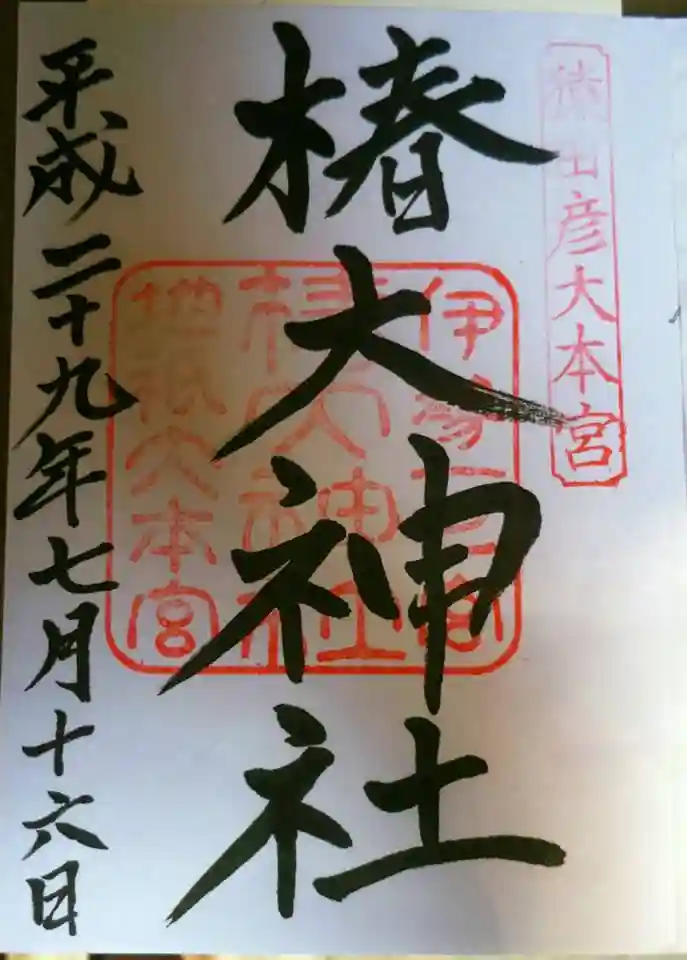 猿田彦大本宮
椿大神社
伊勢一宮
椿大神社
地祇大本宮
平成二十九年七月十六日